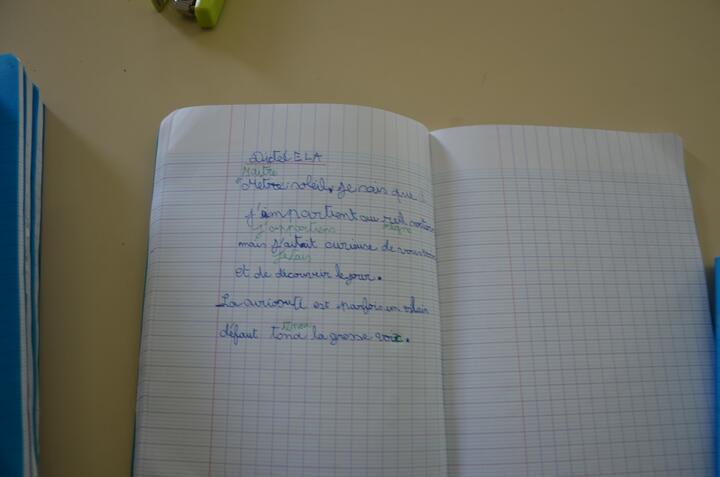 Dictée ELA
Maître
"Metre soleil, je sais que
j'impartient au
j'appartiens règne
mais j'aitait curieuse de vous
j'étais
et de découvrir le jour.
La curiosité est parfois un vilain
défaut tona la grosse voix.